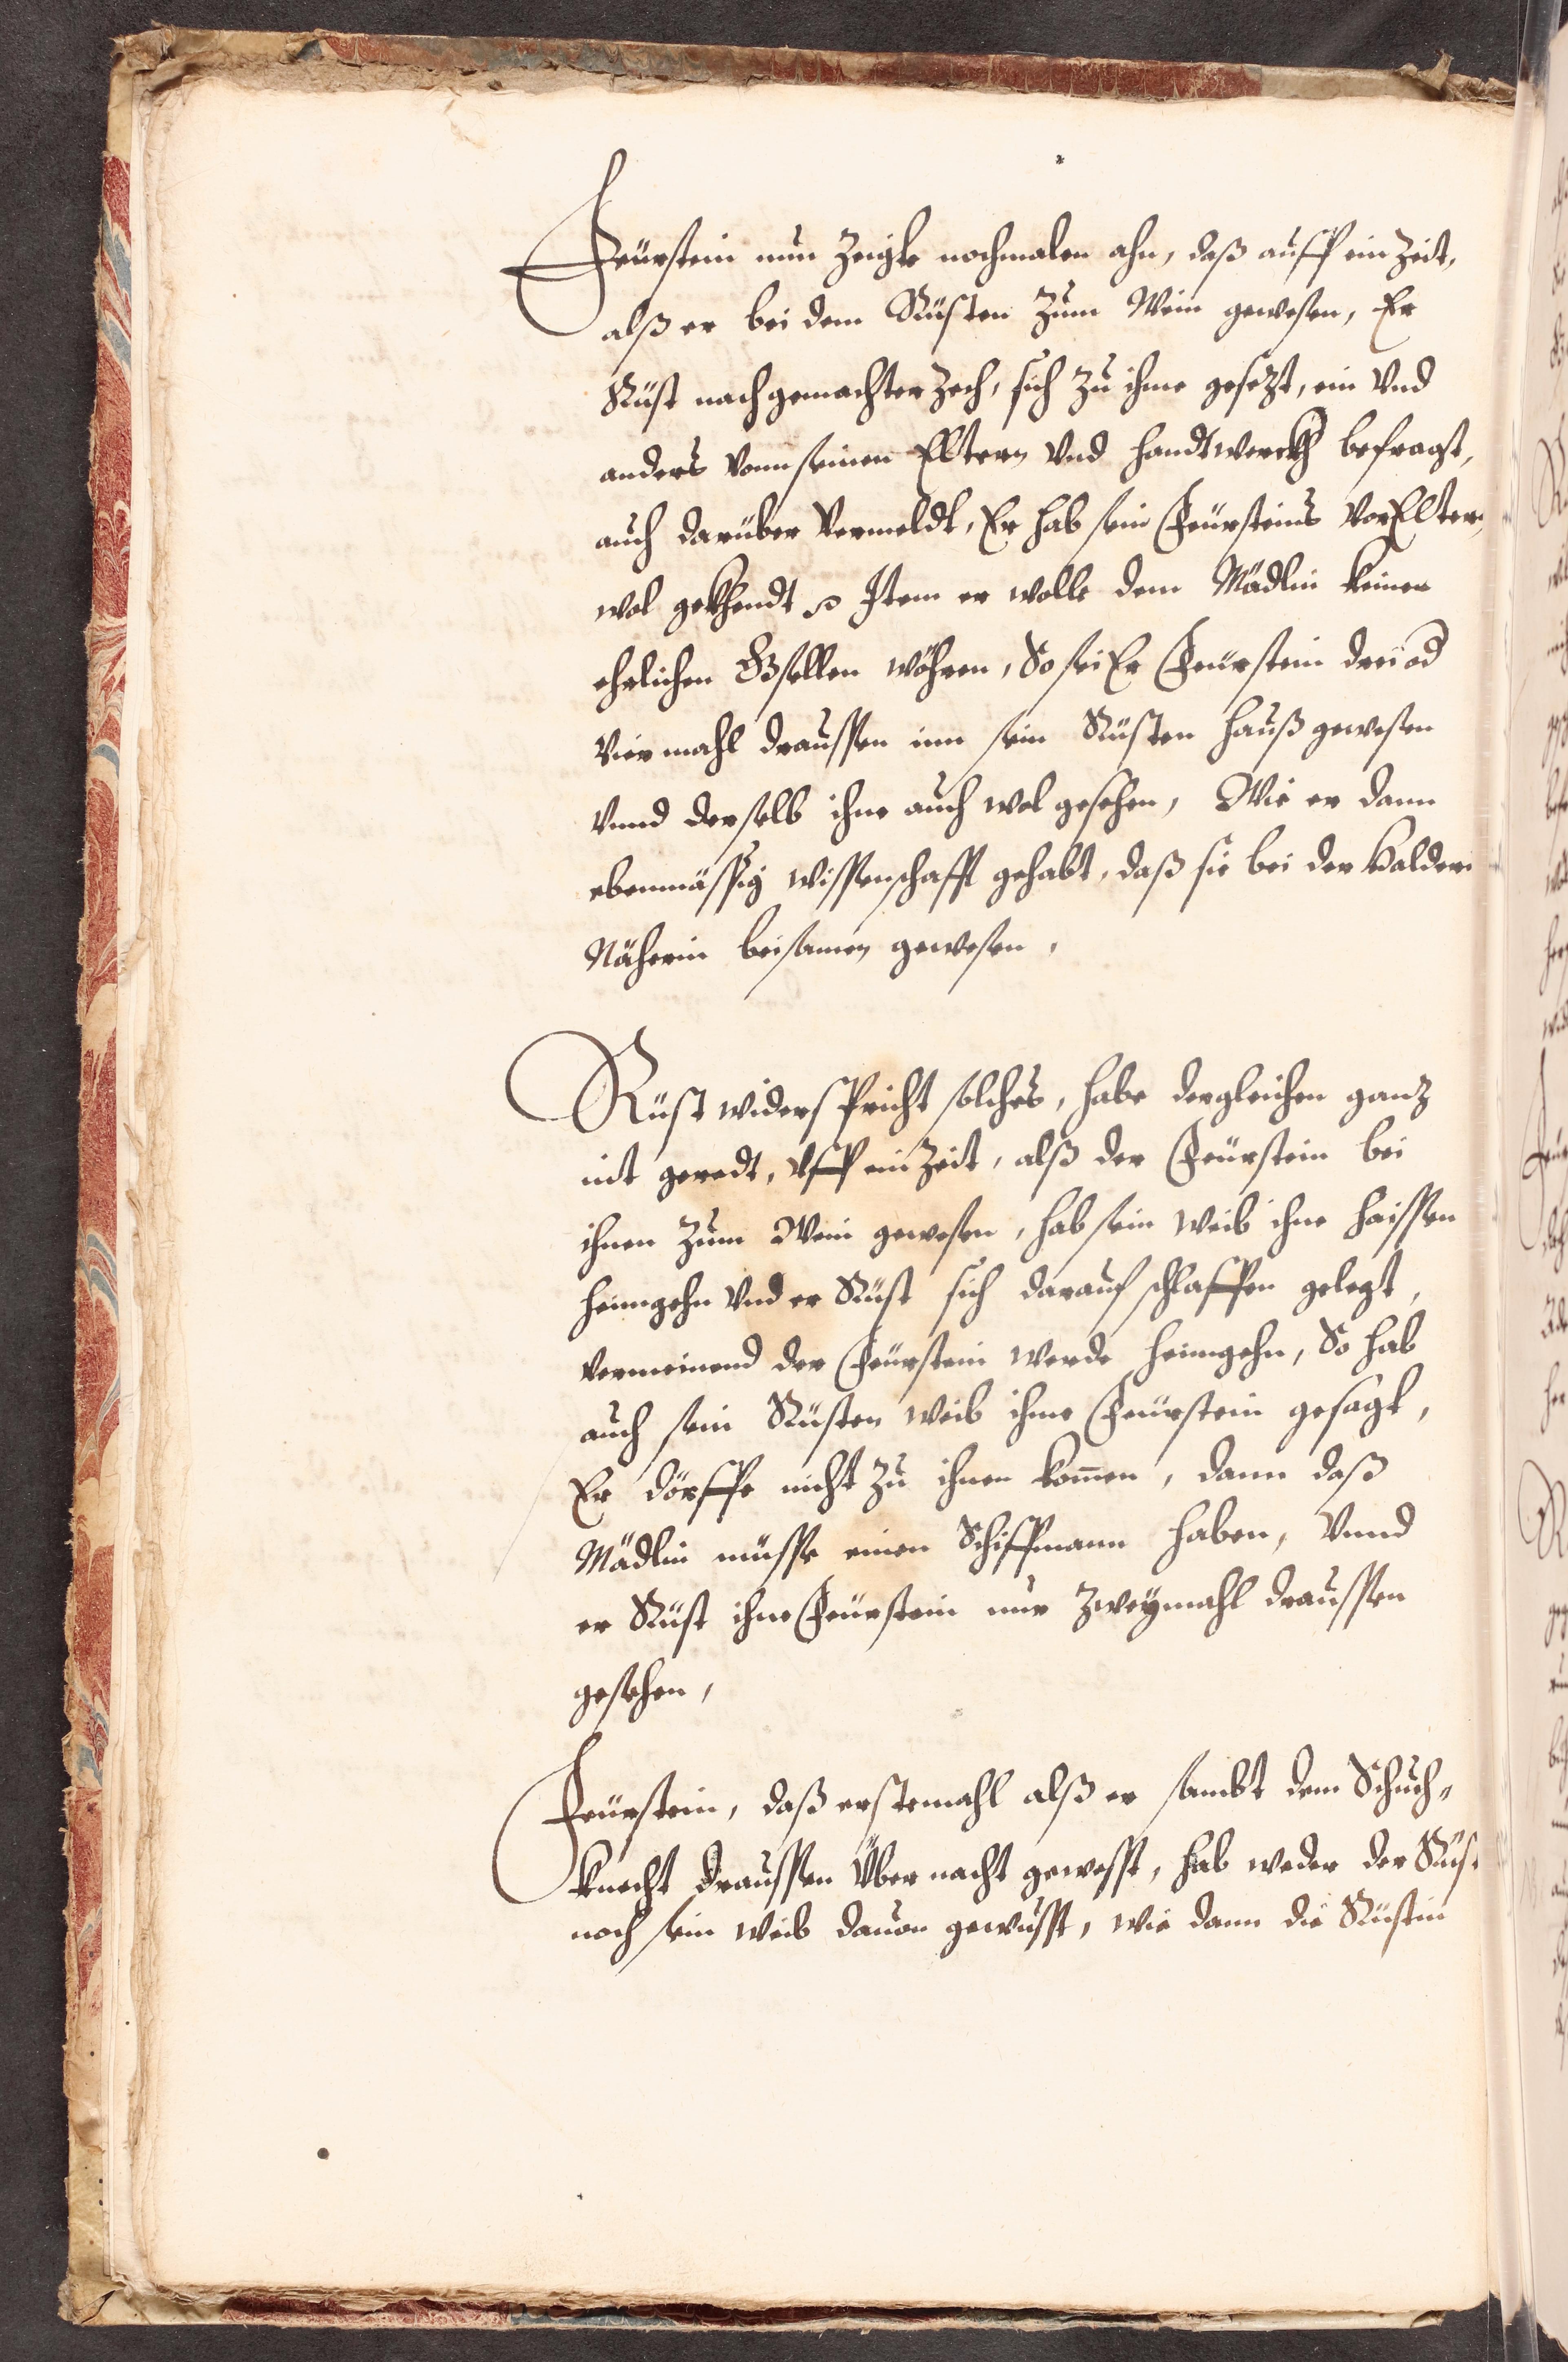 Feürstein nun Zeigte nochmalen ahn, daß auff ein Zeit,
alß er bei dem Rüsten Zum Wein gewesen, Er
Rüst nach gemachter Zech, sich Zu ihme gesezt, ein Vnd
anders vonn seinen Eltern Vnd handtwerckh befragt,
auch darüber Vermeldt, Er hab sein Feürsteins VorEltern
wol gekhendt Item er wolle dem Mädlin keinen
ehrlichen Gsellen wöhren, So sei Er Feürstein drei od
Vier mahl draussen inn sein Rüsten hauß gewesen
Vnnd derselb ihne auch wol gesehen, Wie er dann
ebenmässig wissenschafft gehabt, daß sie bei der Halderi
Näherin beisamen gewesen,
Rüst widerspricht solches, habe dergleichen ganz
nit geredt, Vff ein Zeit, alß der Feürstein bei
ihnen Zum Wein gewesen, hab sein weib ihne haissen
heimgehn Vnd er Rüst sich darauf schlaffen gelegt,
vermeinend der Feürstein werde heimgehn, So hab
auch sein Rüsten weib ihme Feürstein gesagt,
Er dörffe nicht Zu ihnen komen, dann daß
Mädlin müsse einen Schiffmann haben, Vnnd
er Rüst ihne Feürstein nur Zweymahl draussen
gesehen,
Feürstein, daß erstemahl alß er sambt dem Schuch„
knecht draussen Über nacht gewesst, hab weder der Rüst
noch sein weib dauon gewusst, wie dann die Rüstin